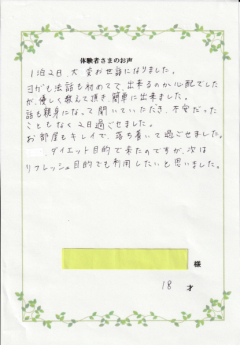 体験者さまのお声
1泊2日、大変お世話になりました。
ヨガも法話も初めてで、出来るのか心配でした
が、優しく教えて頂き、簡単に出来ました。
話も親身になって聞いていただき、不安だった
こともなく2日過ごせました。
お部屋もキレイで、落ち着いて過ごせました。
ダイエット目的で来たのですが、次は
リフレッシュ目的でも利用したいと思いました。
様
18 才